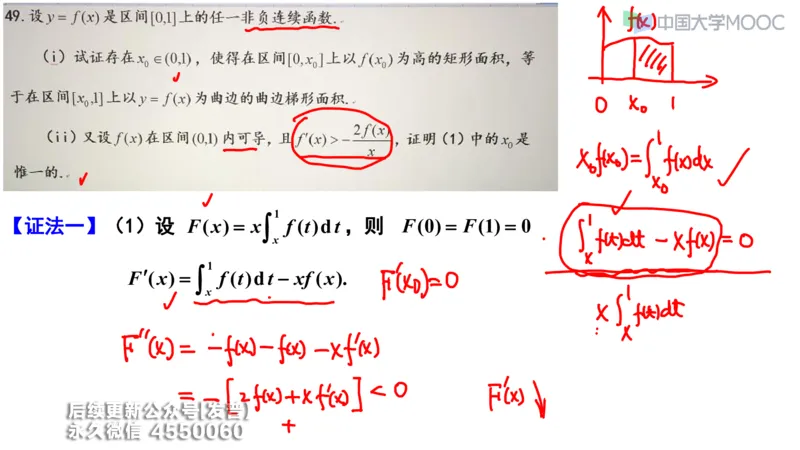 49. 设 y = f(x) 是区间[0,1]上的任一非负连续函数.
(i) 试证存在 x₀ ∈(0,1), 使得在区间[0, x₀]上以 f(x₀) 为高的矩形面积, 等
于在区间[x₀,1]上以 y = f(x) 为曲边的曲边梯形面积.
(ii) 又设 f(x) 在区间(0,1) 内可导, 且 f′(x) > −2f(x)/x, 证明 (1) 中的 x₀ 是
惟一的.
f(x)
中国大学MOOC
0 x₀ 1
x₀f(x₀) = ∫_{x₀}^{1} f(x)dx
【证法一】(1) 设 F(x) = x∫_{x}^{1} f(t)dt, 则 F(0) = F(1) = 0
∫_{x}^{1} f(t)dt − xf(x) = 0
F′(x) = ∫_{x}^{1} f(t)dt − xf(x).
F′(x₀) = 0
x∫_{x}^{1} f(t)dt
F″(x) = −f(x) − f(x) − xf′(x)
= −[2f(x) + xf′(x)] < 0
F′(x) ↓
+
后续更新公众号[发普]
永久微信 4550060